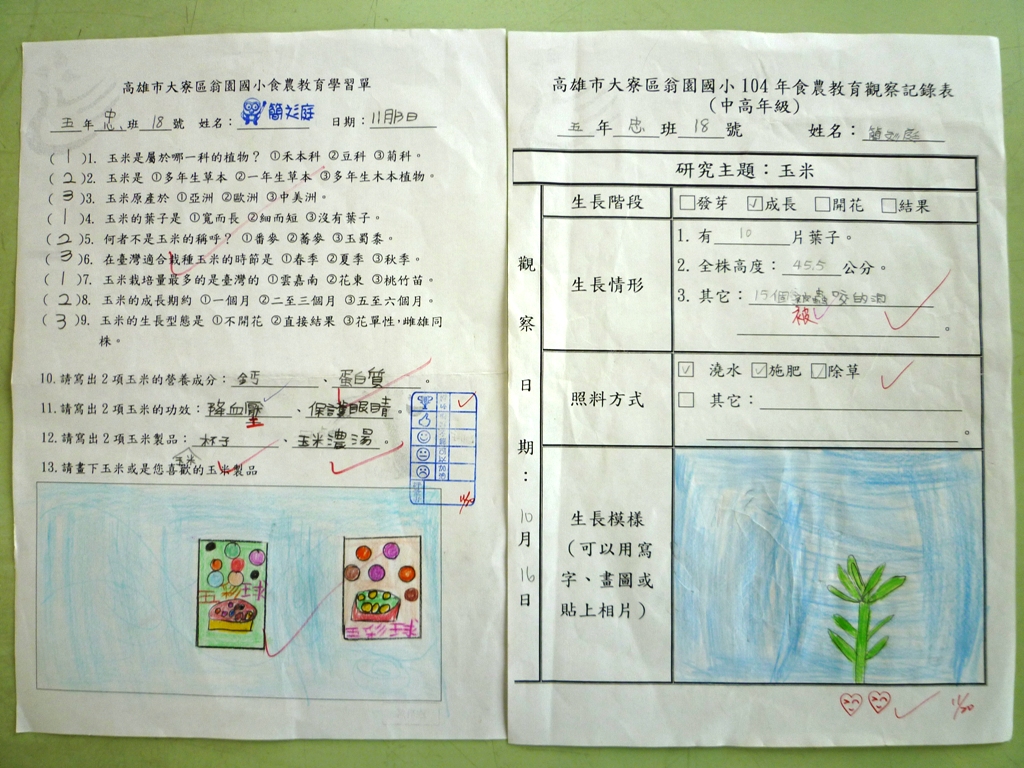 高雄市大寮區翁園國小食農教育學習單
五年忠班18號 姓名：簡 庭 日期：11月13日
(1)1. 玉米是屬於哪一科的植物？ ①禾本科 ②豆科 ③菊科。
(2)2. 玉米是 ①多年生草本 ②一年生草本 ③多年生木本植物。
(3)3. 玉米原產於 ①亞洲 ②歐洲 ③中美洲。
(1)4. 玉米的葉子是 ①寬而長 ②細而短 ③沒有葉子。
(2)5. 何者不是玉米的稱呼？ ①番麥 ②蕎麥 ③玉蜀黍。
(3)6. 在臺灣適合栽種玉米的時節是 ①春季 ②夏季 ③秋季。
(1)7. 玉米栽培量最多的是臺灣的 ①雲嘉南 ②花東 ③桃竹苗。
(2)8. 玉米的成長期約 ①一個月 ②二至三個月 ③五至六個月。
(3)9. 玉米的生長型態是 ①不開花 ②直接結果 ③花單性，雌雄同
株。
10. 請寫出2項玉米的營養成分：鈣、蛋白質。
11. 請寫出2項玉米的功效：降血壓、保護眼睛。
12. 請寫出2項玉米製品：杯子、玉米濃湯。
玉米
13. 請畫下玉米或是您喜歡的玉米製品
11/20
五彩球
五彩球
高雄市大寮區翁園國小104年食農教育觀察記錄表
（中高年級）
五年忠班18號 姓名：簡 庭
研究主題：玉米
觀察日期：10月16日
生長階段 □發芽 ☑成長 □開花 □結果
生長情形
1. 有10片葉子。
2. 全株高度：45.5公分。
3. 其它：15個 蟲咬的洞
被
。
照料方式
☑ 澆水 ☑施肥 ☑除草
□ 其它：
。
生長模樣
（可以用寫
字、畫圖或
貼上相片）
11/20